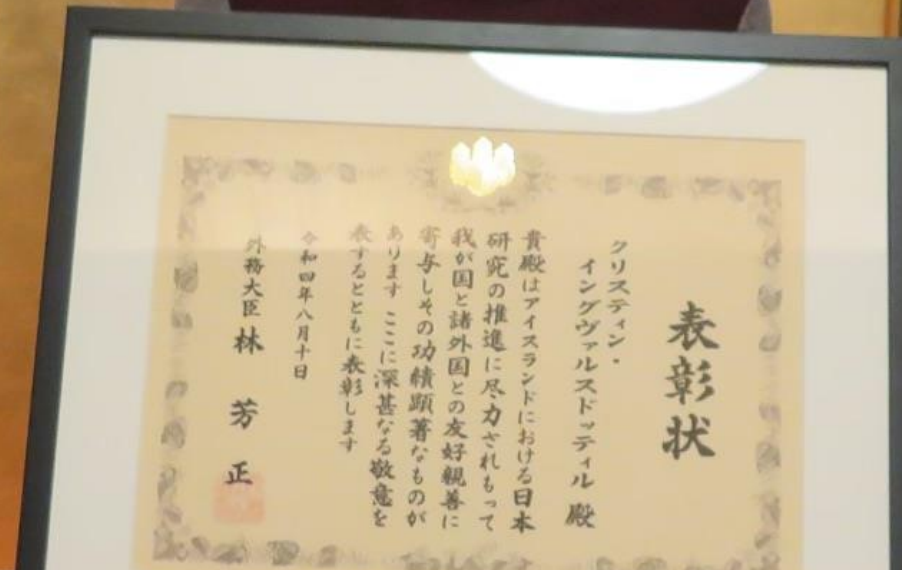 表彰状
クリスティン・
イングヴァルスドッティル 殿
貴殿はアイスランドにおける日本
研究の推進に尽力されもって
我が国と諸外国との友好親善に
寄与しその功績顕著なものが
あります ここに深甚なる敬意を
表するとともに表彰します
令和四年八月十日
外務大臣 林 芳 正